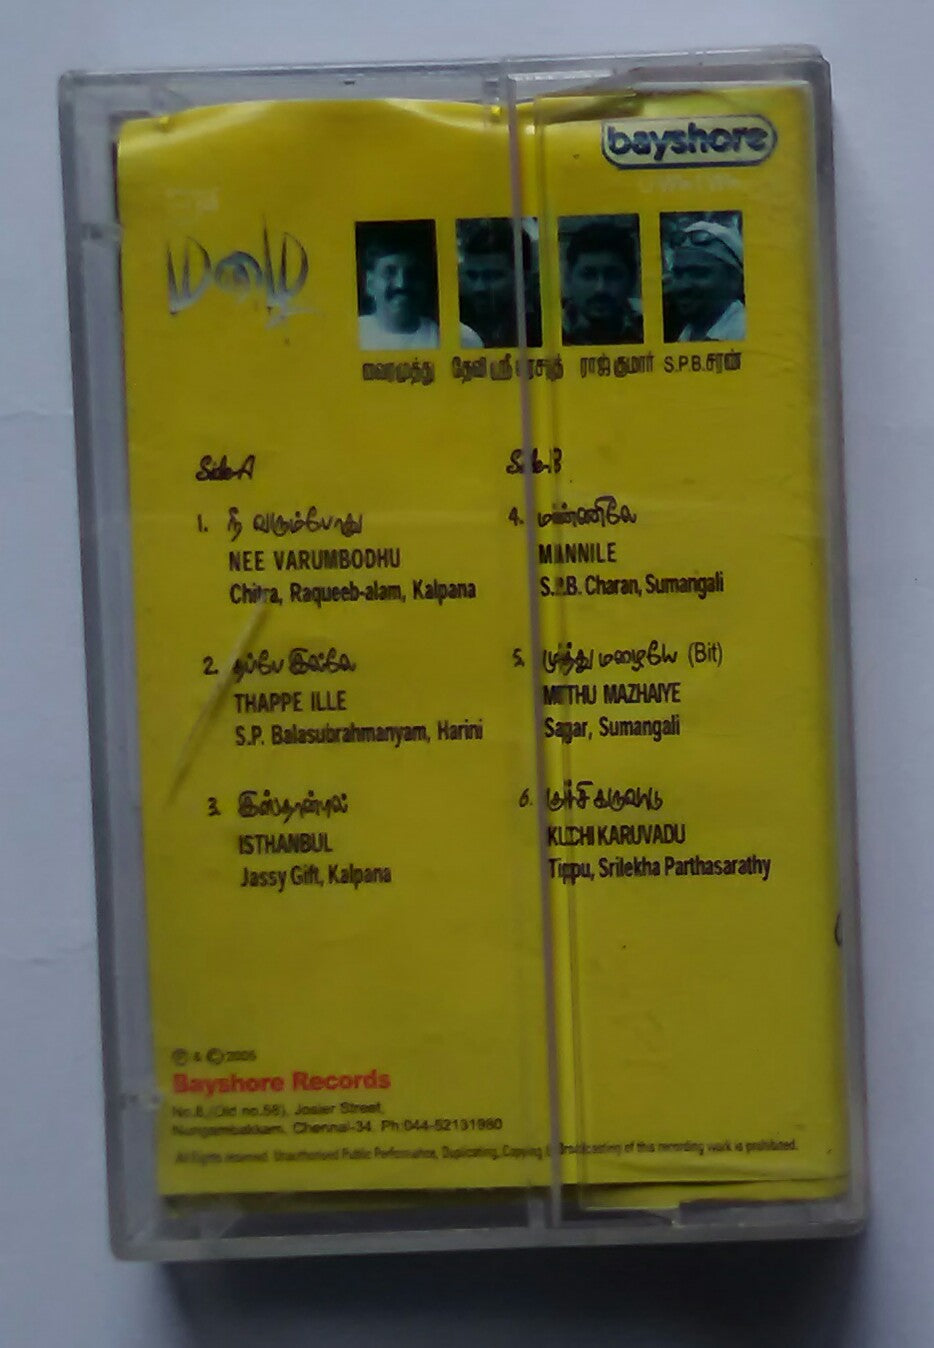 bayshore
மழை
வைரமுத்து தேவி ஸ்ரீ பிரசாத் ராஜ் குமார் S.P.B.சரண்
Side-A
1. நீ வரும்போது
NEE VARUMBODHU
Chitra, Raqueeb-alam, Kalpana
2. தப்பே இல்லே
THAPPE ILLE
S.P. Balasubrahmanyam, Harini
3. இஸ்தான்புல்
ISTHANBUL
Jassy Gift, Kalpana
Side-B
4. மண்ணிலே
MANNILE
S.P.B. Charan, Sumangali
5. முத்து மழையே (Bit)
MUTHU MAZHAIYE
Sagar, Sumangali
6. குச்சி கருவாடு
KUCHI KARUVADU
Tippu, Srilekha Parthasarathy
Ⓟ & © 2005
Bayshore Records
No.8,(Old no.58), Josier Street,
Nungambakkam, Chennai-34. Ph:044-52131980
All Rights reserved. Unauthorised Public Performance, Duplicating, Copying & Broadcasting of this recording work is prohibited.